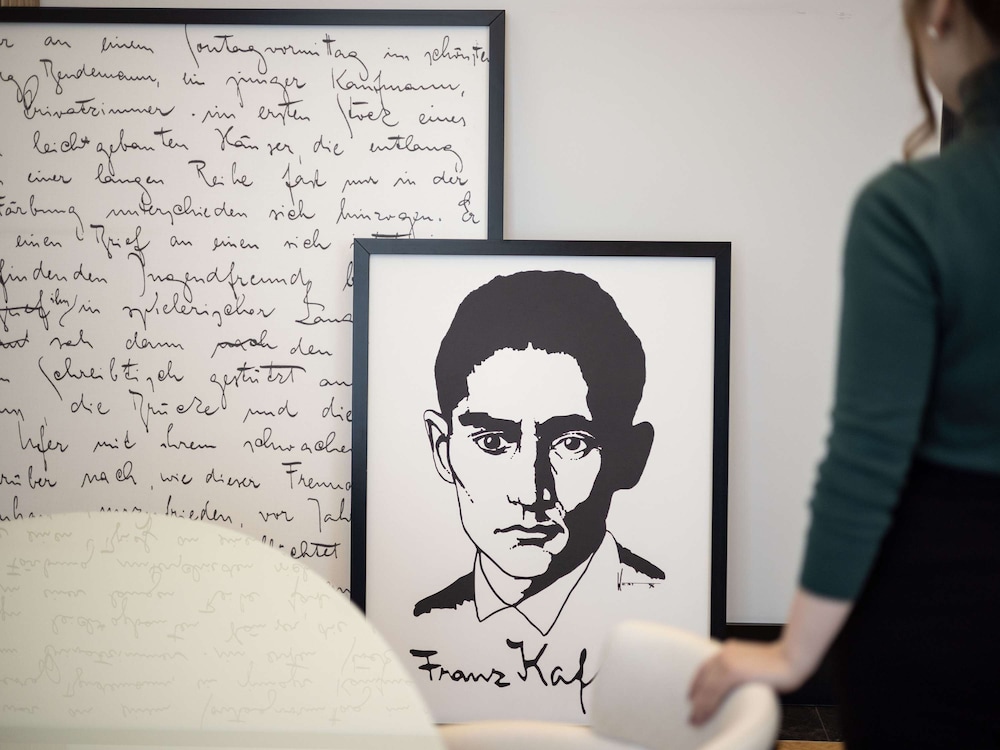 an einem Sontagvormittag im schönsten
Bendemann, ein junger Kaufmann,
Privatzimmer im ersten Stock eines
leichtgebauten Häuser, die entlang
einer langen Reihe fast nur in der
Färbung unterschieden sich hinzogen. Er
einen Brief an einen sich
findenden Jugendfreund
ihn in spielerischer
sah dann nach den
Schreibtisch gestützt
die Brücke und die
Ufer mit ihrem schwachen
darüber nach, wie dieser Freund
vor
Franz Kaf